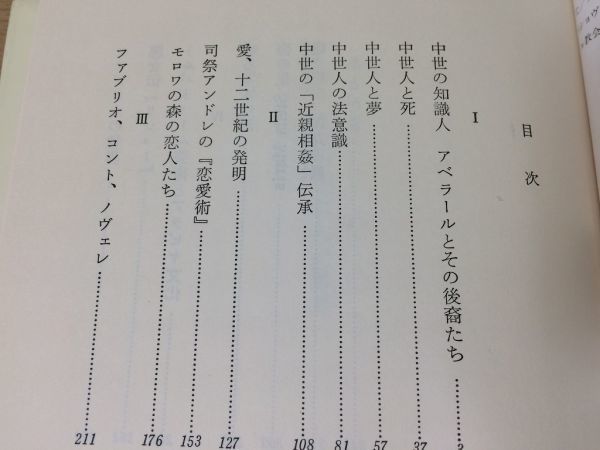 目次
I
中世の知識人 アベラールとその後裔たち 3
中世人と死 37
中世人と夢 57
中世人の法意識 81
中世の「近親相姦」伝承 108
II
愛、十二世紀の発明 127
司祭アンドレの『恋愛術』 153
モロワの森の恋人たち 176
III
ファブリオ、コント、ノヴェレ 211